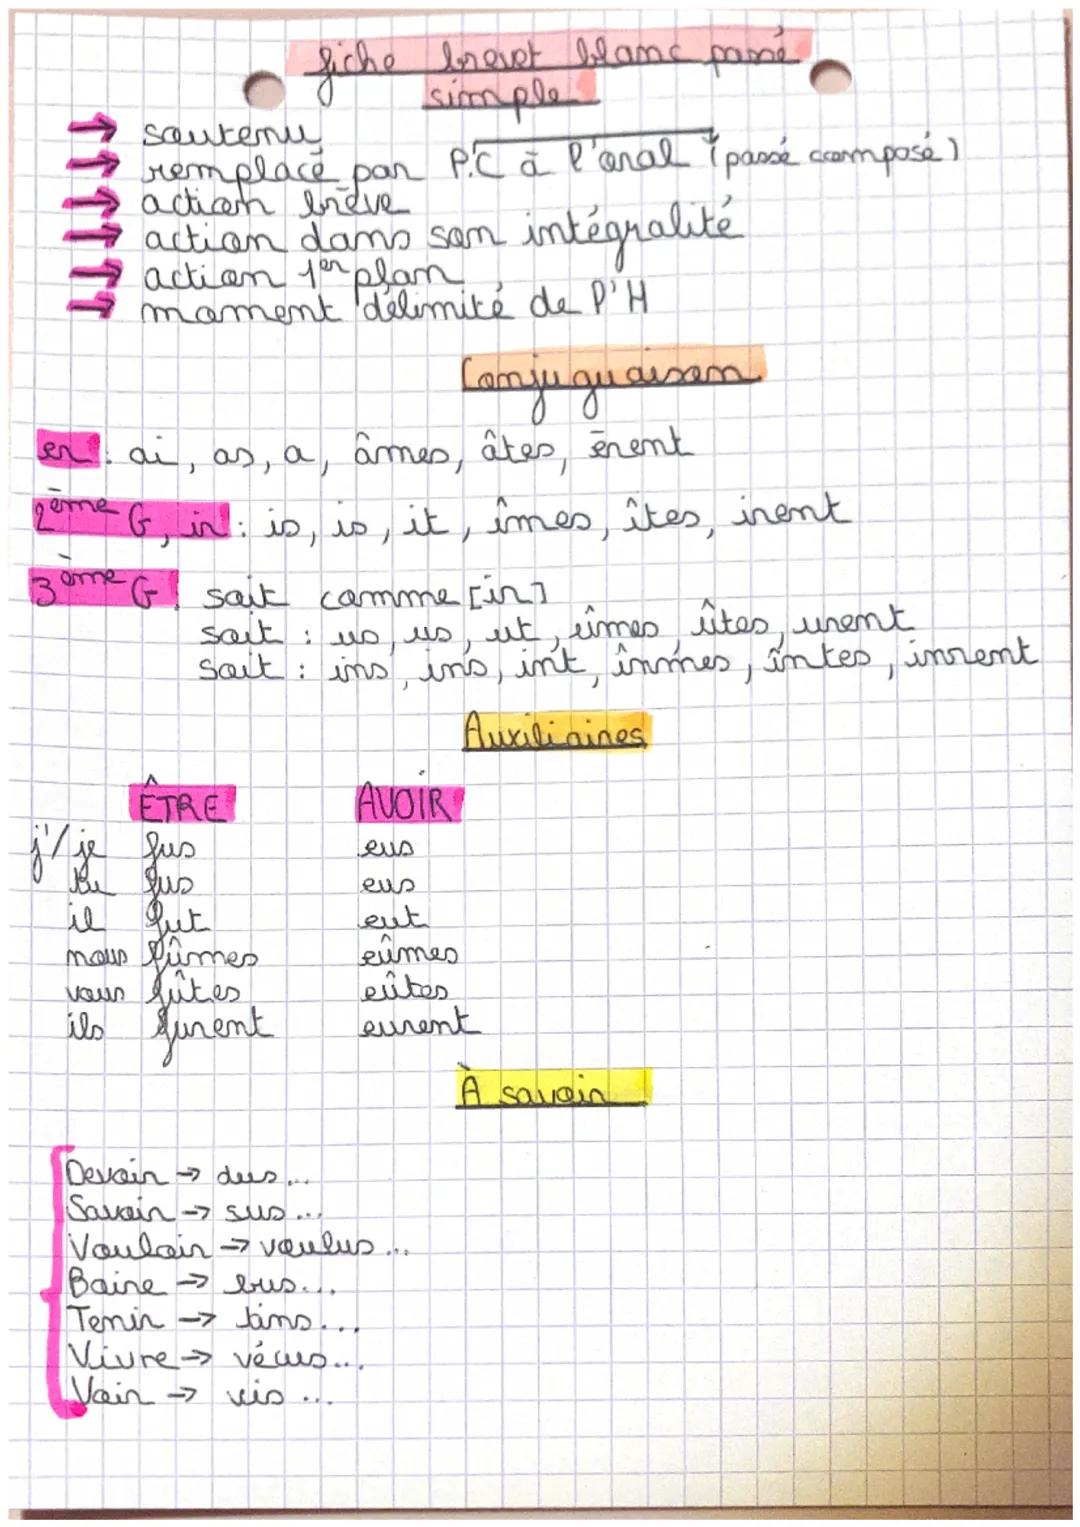 fiche brevet blanc passé
simple
→ soutenu
→ remplacé par P.C à l'oral (passé composé)
→ action brève
→ action dans son intégralité
→ action 1er plan
→ moment délimité de l'H
Conjuguaison
er : ai, as, a, âmes, âtes, èrent
2ème G, ir : is, is, it, îmes, îtes, irent
3ème G. soit comme [ir]
soit : us, us, ut, ûmes, ûtes, urent
soit : ins, ins, int, înmes, întes, inrent
Auxiliaires
ÊTRE AVOIR
j'/je fus eus
tu fus eus
il fut eut
nous fûmes eûmes
vous fûtes eûtes
ils furent eurent
À savoir
Devoir → dus...
Savoir → sus...
Vouloir → voulus...
Boire → bus...
Tenir → tins...
Vivre → vécus...
Voir → vis...